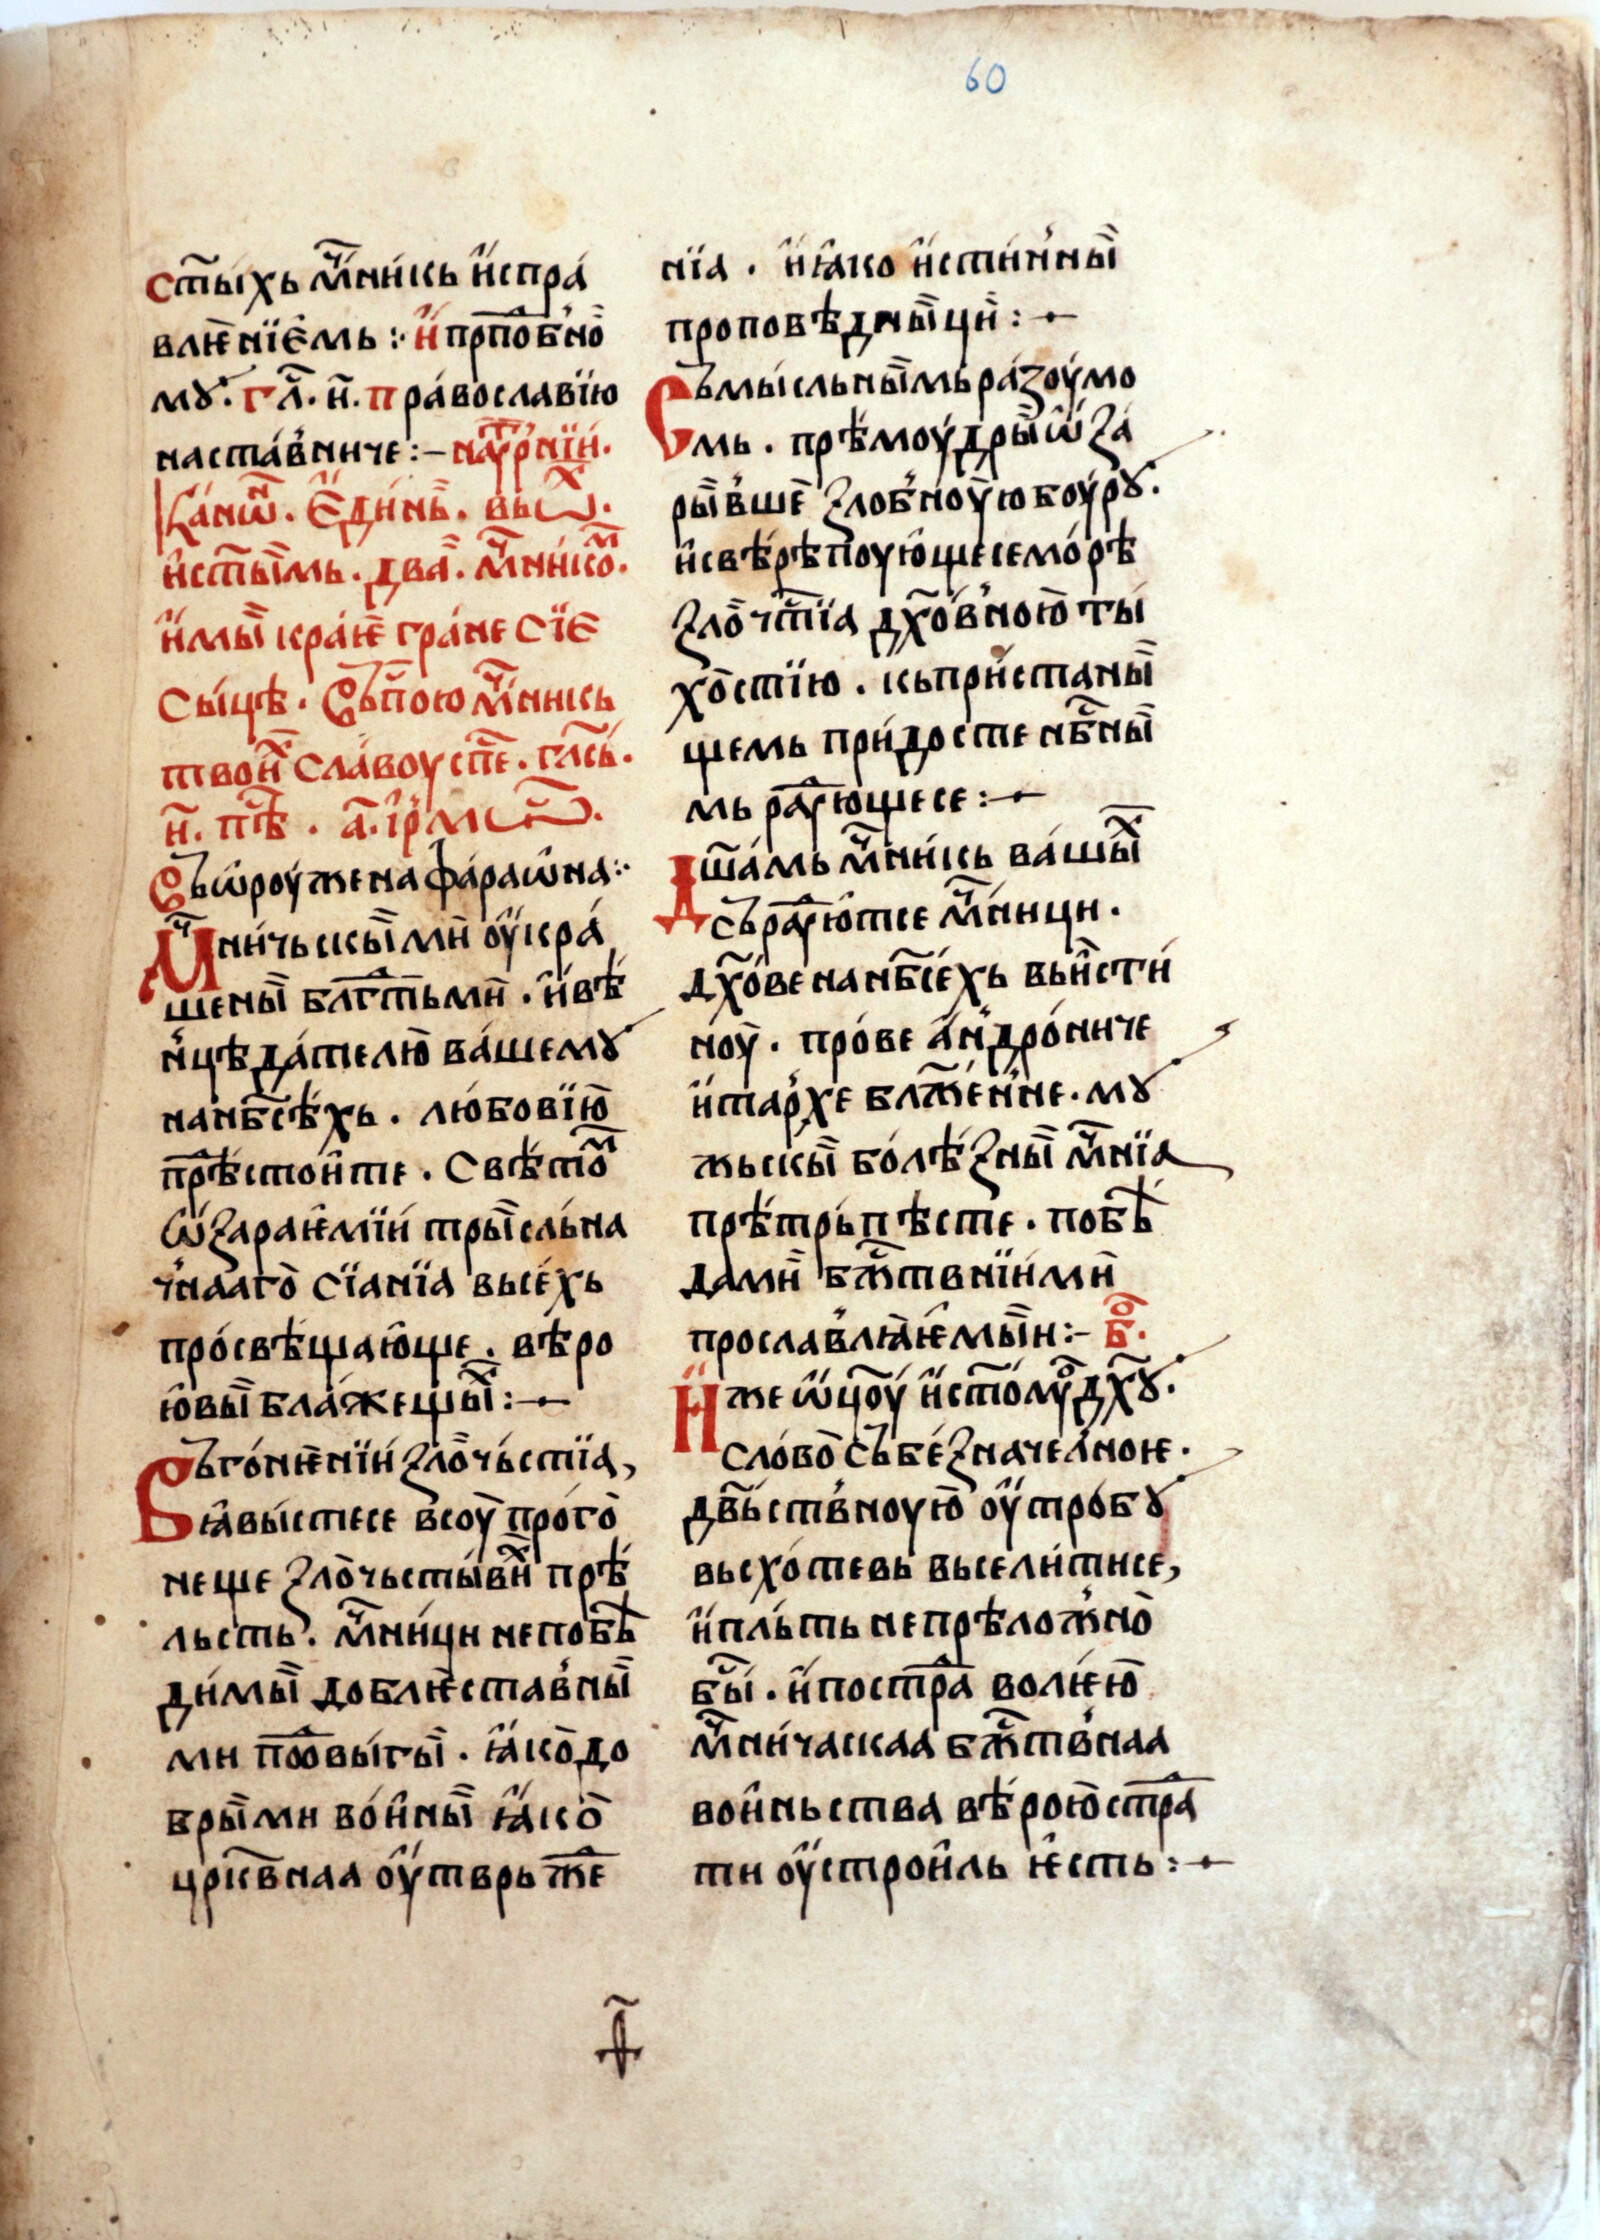 60
ст҃ы́хь мч҃ни́кь и҆спра́
влѥ́нїемь : и҆ прⷣпо́бно
мꙋ. гл҃. и҃. пра́вославїю
наста́вниче :– наꙋтрⷩїи.
Кано҃ѡ. Еди́нь. вьѡⷯ.
и҆ст҃ы́мь. два̀. мч҃нико́ⷨ.
и҆мы̀ кра́ѥ гра́не сїе
сы́цѣ. Съпою мч҃никь
твоиⷯ сла́воу сп҃се. гла́сь.
и҃. пѣⷭ. а҃. і҆рмѡⷭ.
Съѡроуже на фа́раѡна :
Мч҃ни́чьскы̀ми оу҆кра́
шены̀ блгⷣтьмѝ. и҆вѣ́
нцѣда́телю̀ ва́шемꙋ
нанб҃сѣ́хь. лю́бовїю̀
прѣⷣстои́те. Свѣ́тоⷨ
ѡ҆ꙁараѥ́мїи тры̀сль́на
чнааго̀ сїанїа вьсе́хь
про́свѣщаю҆ще. вѣ́ро
ю҆вы̀ бла́жещыⷯ :–
Въго́нѥнїи ꙁло̀чь́стїа,
ꙗ҆вы́стесе всоу̀ про́го̀
неще ꙁло̀чьсты́виⷯ прѣ́
льсть. мч҃ни́ци непобѣ̀
ди́мы̀ доблѥ̀ставны̀
ми поⷣвы́гы̀. ꙗ҆ко̀до
бры̀ми во́и҆ны̀ ꙗ҆ко̀
црк҃внаа оу҆тврьжⷣе
нїа. и҆ꙗ҆ко и҆сти́нны̀
проповѣдны̀ци̇ :–
Съмы́сльны̀мь ра́ꙁоу́мо
мь. прѣ́моу́дры̀ ѡ҆ꙁа́
ры̀вше̇ ꙁлобноу̀ю боу́рꙋ.
и҆свѣ́рѣпоую҆щесе мо́рѣ
ꙁло̀чтⷭ҇їа дх҃о́вною̀ ты́
хо̀стїю. кьпри́станы̀
щемь при́досте нбⷭ҇ны̀
мь раⷣꙋющесе :–
Дш҃а́мь мч҃ни́кь ва́шыⷯ
съраⷣꙋю҆тсе мч҃ници.
дх҃о́ве нанб҃се́хь вьи́сти́
ноу̀. про́ве а҆ндро́ниче
и҆тар́хе блже́нⷩне. мꙋ
жьскы̀ бо́лѣ́ꙁны̀ мч҃нїа
прѣ́трь́пѣсте. побѣ̀
дамѝ бжⷭ҇твнїи́мѝ
просла́влꙗ҆ѥмы̀и :– боⷢ.
И҆же ѡ҆ц҃оу́ и҆ст҃о́муⷹ дх҃ꙋ.
сло́во̀ събе́ꙁначелноѥ.
дв҃ьствноую̀ оу҆тро́бꙋ
вьсхо́тевь вьсели́тисе,
и҆пль́ть непрѣложно̀
бы́ⷭ. и҆пострⷣа волѥю̀
мч҃ни́часкаа бжⷭ҇твнаа
вои҆ньства вѣ́рою̀ стрⷭа
ти оу҆строи҆ль ѥ҆сть :–